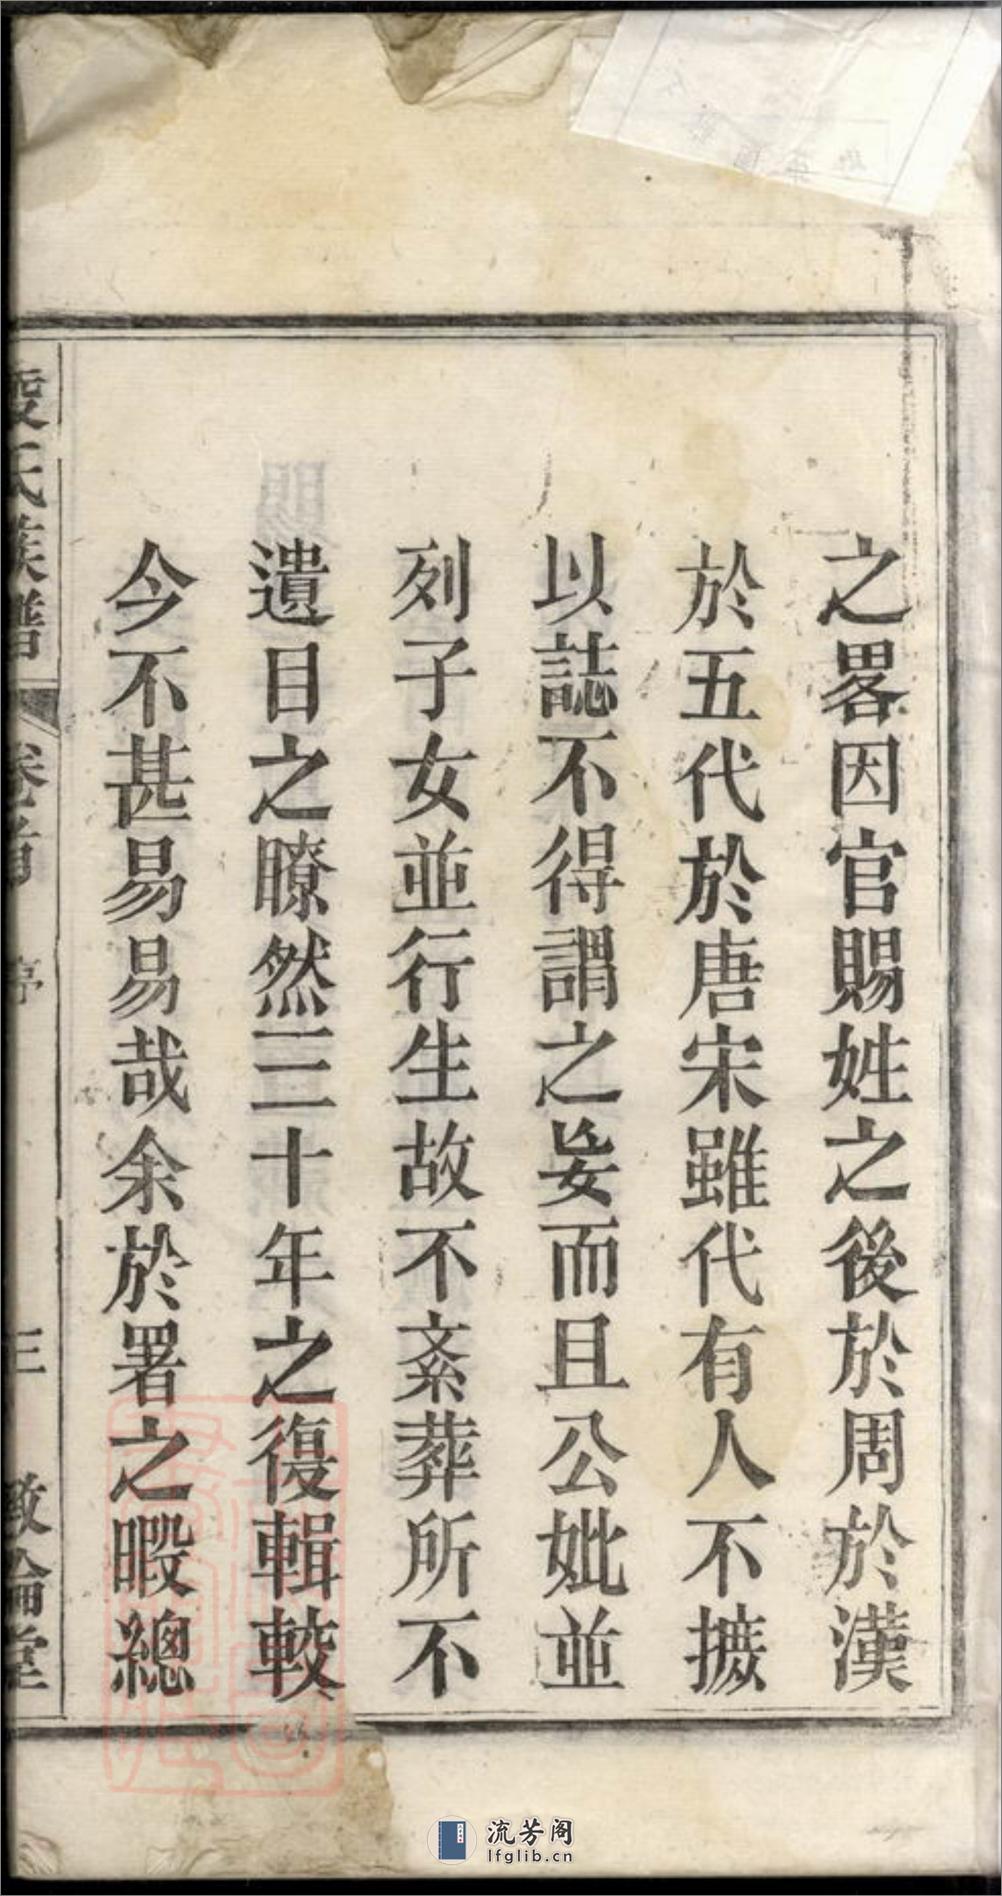 之畧因官賜姓之後於周於漢
於五代於唐宋雖代有人不摭
以誌不得謂之妄而且公妣並
列子女並行生故不紊葬所不
遺目之瞭然三十年之復輯較
今不甚易易哉余於署之暇總
氏族譜
卷首
序
三
敦倫堂
流芳阁
lfglib.cn